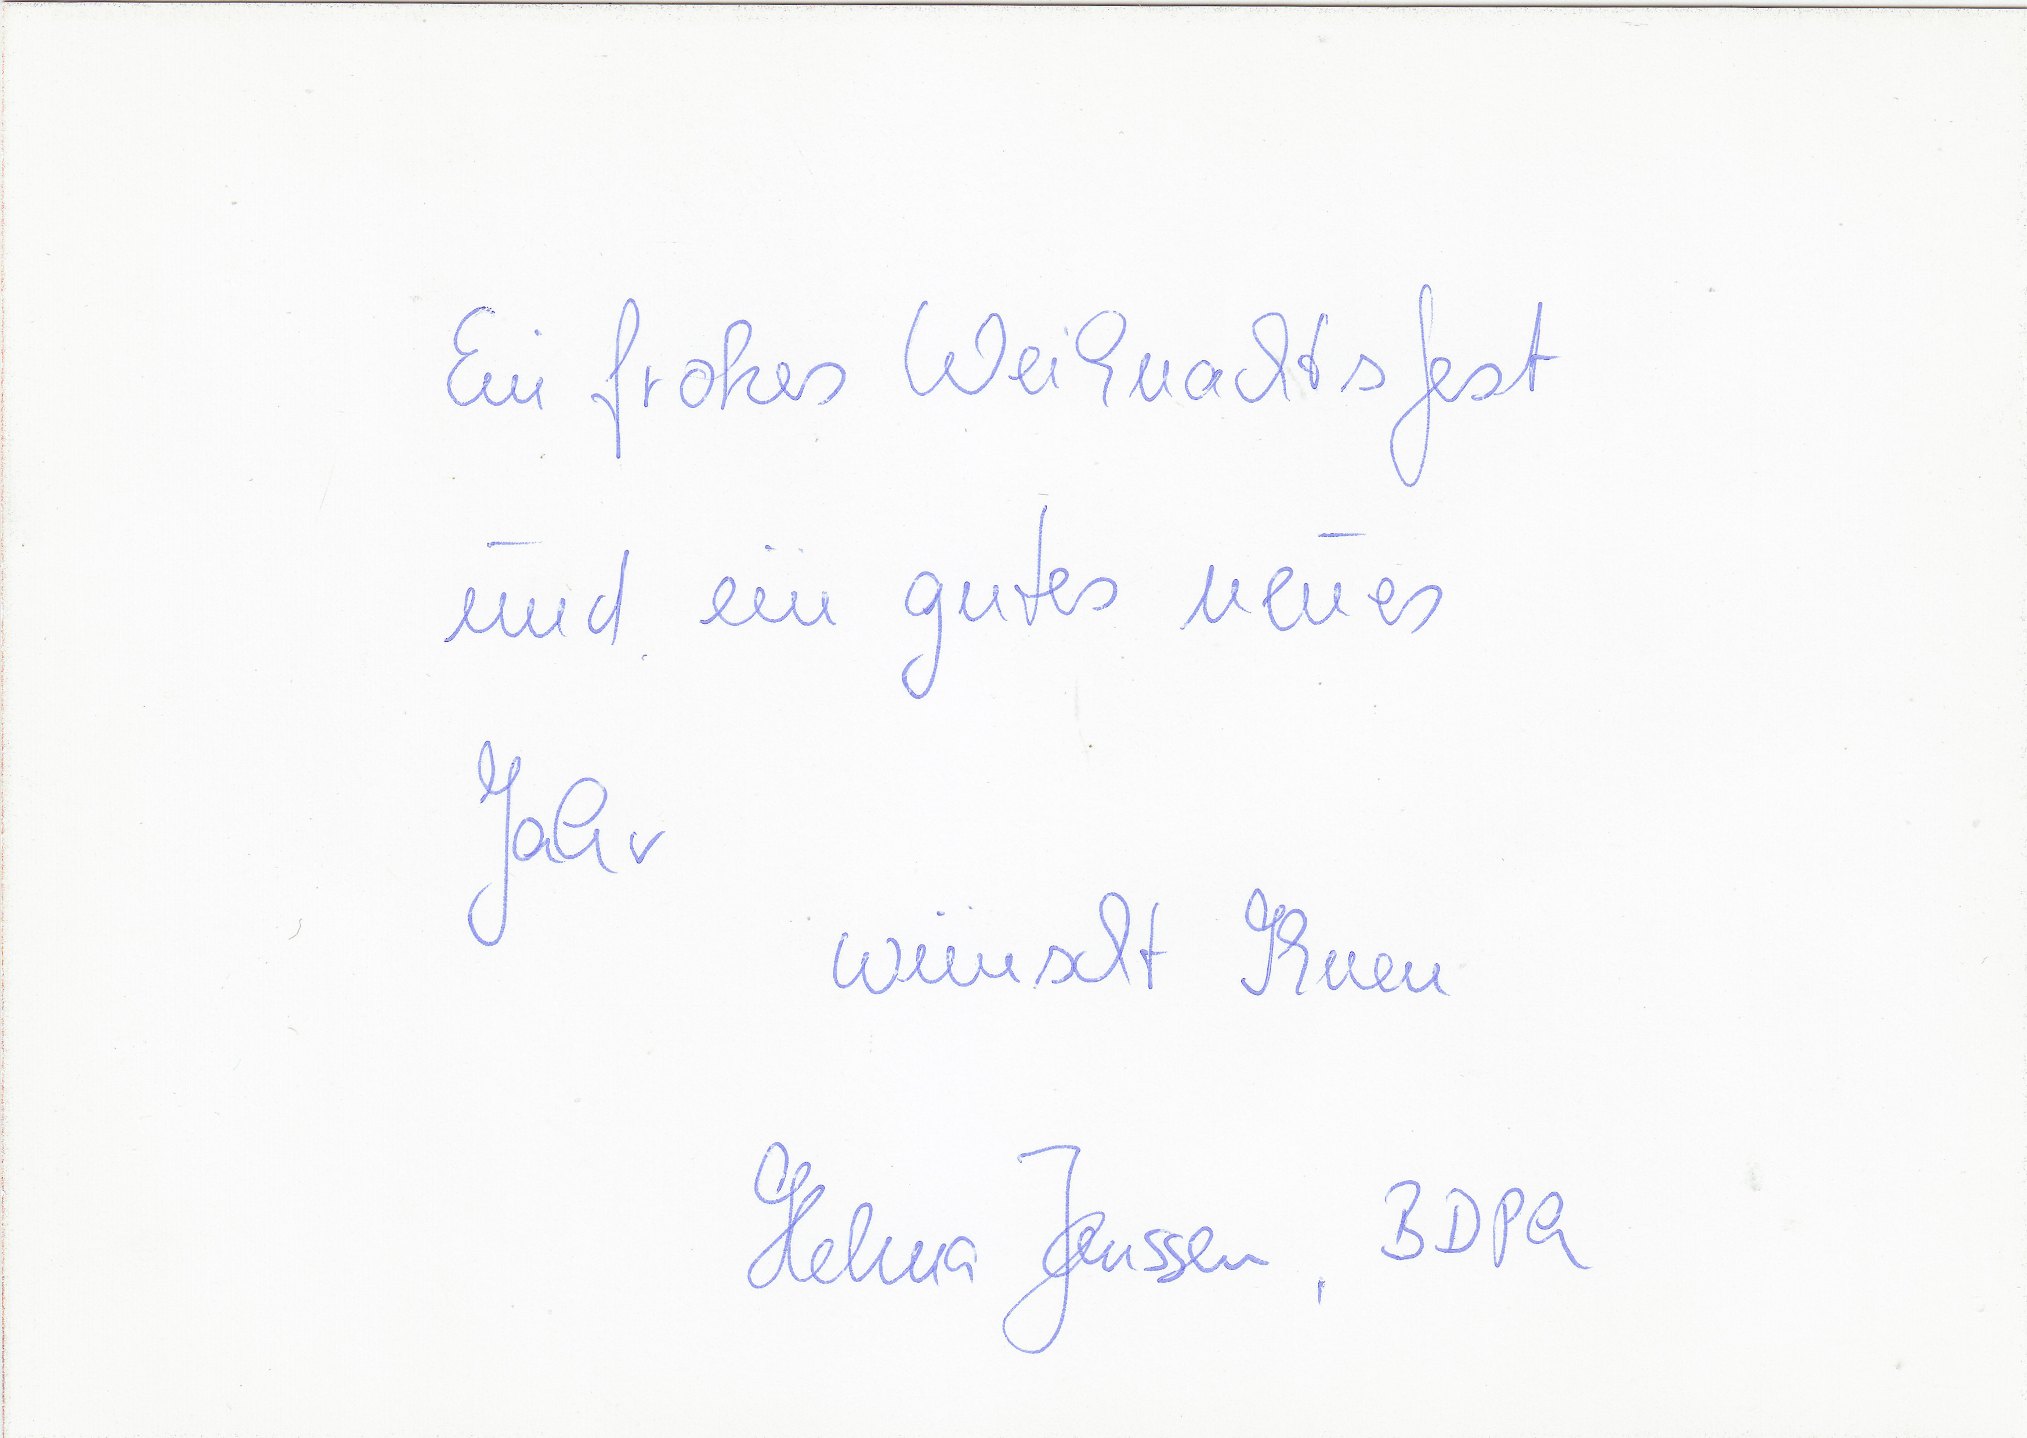 Ein frohes Weihnachtsfest
und ein gutes neues
Jahr
wünscht Ihnen
Helma Janssen, BDPh